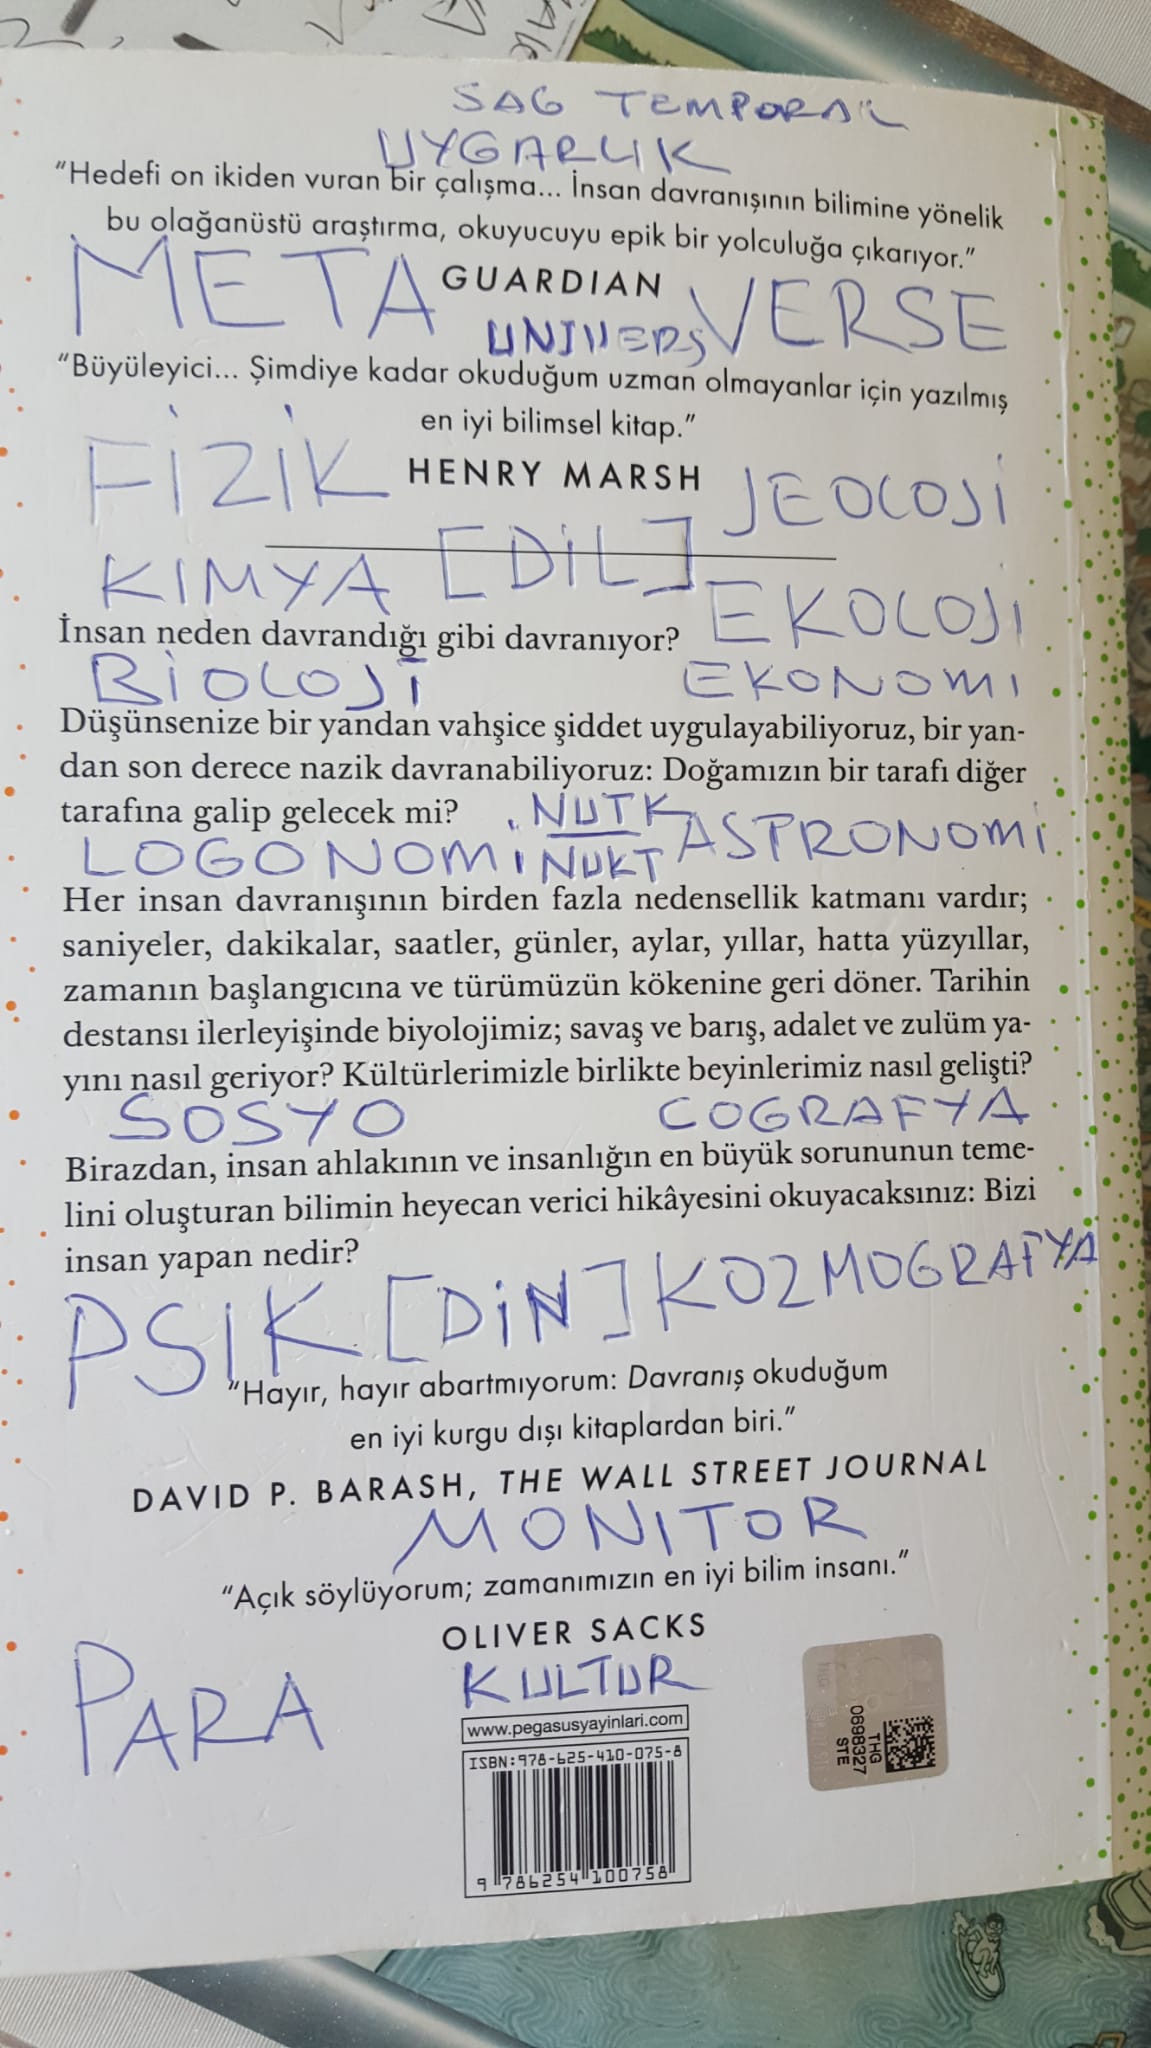 SAG TEMPORAL
UYGARLIK
“Hedefi on ikiden vuran bir çalışma... İnsan davranışının bilimine yönelik
bu olağanüstü araştırma, okuyucuyu epik bir yolculuğa çıkarıyor.”
GUARDIAN
META UNIVERS VERSE
“Büyüleyici... Şimdiye kadar okuduğum uzman olmayanlar için yazılmış
en iyi bilimsel kitap.”
HENRY MARSH
FİZİK JEOLOJİ
KIMYA [DİL] EKOLOJI
İnsan neden davrandığı gibi davranıyor?
BİOLOJİ EKONOMI
Düşünsenize bir yandan vahşice şiddet uygulayabiliyoruz, bir yan-
dan son derece nazik davranabiliyoruz: Doğamızın bir tarafı diğer
tarafına galip gelecek mi?
NUTK
LOGONOMI NUKT ASTRONOMİ
Her insan davranışının birden fazla nedensellik katmanı vardır;
saniyeler, dakikalar, saatler, günler, aylar, yıllar, hatta yüzyıllar,
zamanın başlangıcına ve türümüzün kökenine geri döner. Tarihin
destansı ilerleyişinde biyolojimiz; savaş ve barış, adalet ve zulüm ya-
yını nasıl geriyor? Kültürlerimizle birlikte beyinlerimiz nasıl gelişti?
SOSYO COGRAFYA
Birazdan, insan ahlakının ve insanlığın en büyük sorununun teme-
lini oluşturan bilimin heyecan verici hikâyesini okuyacaksınız: Bizi
insan yapan nedir?
PSIK [DİN] KOZMOGRAFYA
“Hayır, hayır abartmıyorum: Davranış okuduğum
en iyi kurgu dışı kitaplardan biri.”
DAVID P. BARASH, THE WALL STREET JOURNAL
MONITOR
“Açık söylüyorum; zamanımızın en iyi bilim insanı.”
OLIVER SACKS
PARA KULTUR
www.pegasusyayinlari.com
ISBN:978-625-410-075-8
9 786254 100758
THG
0698327
STE